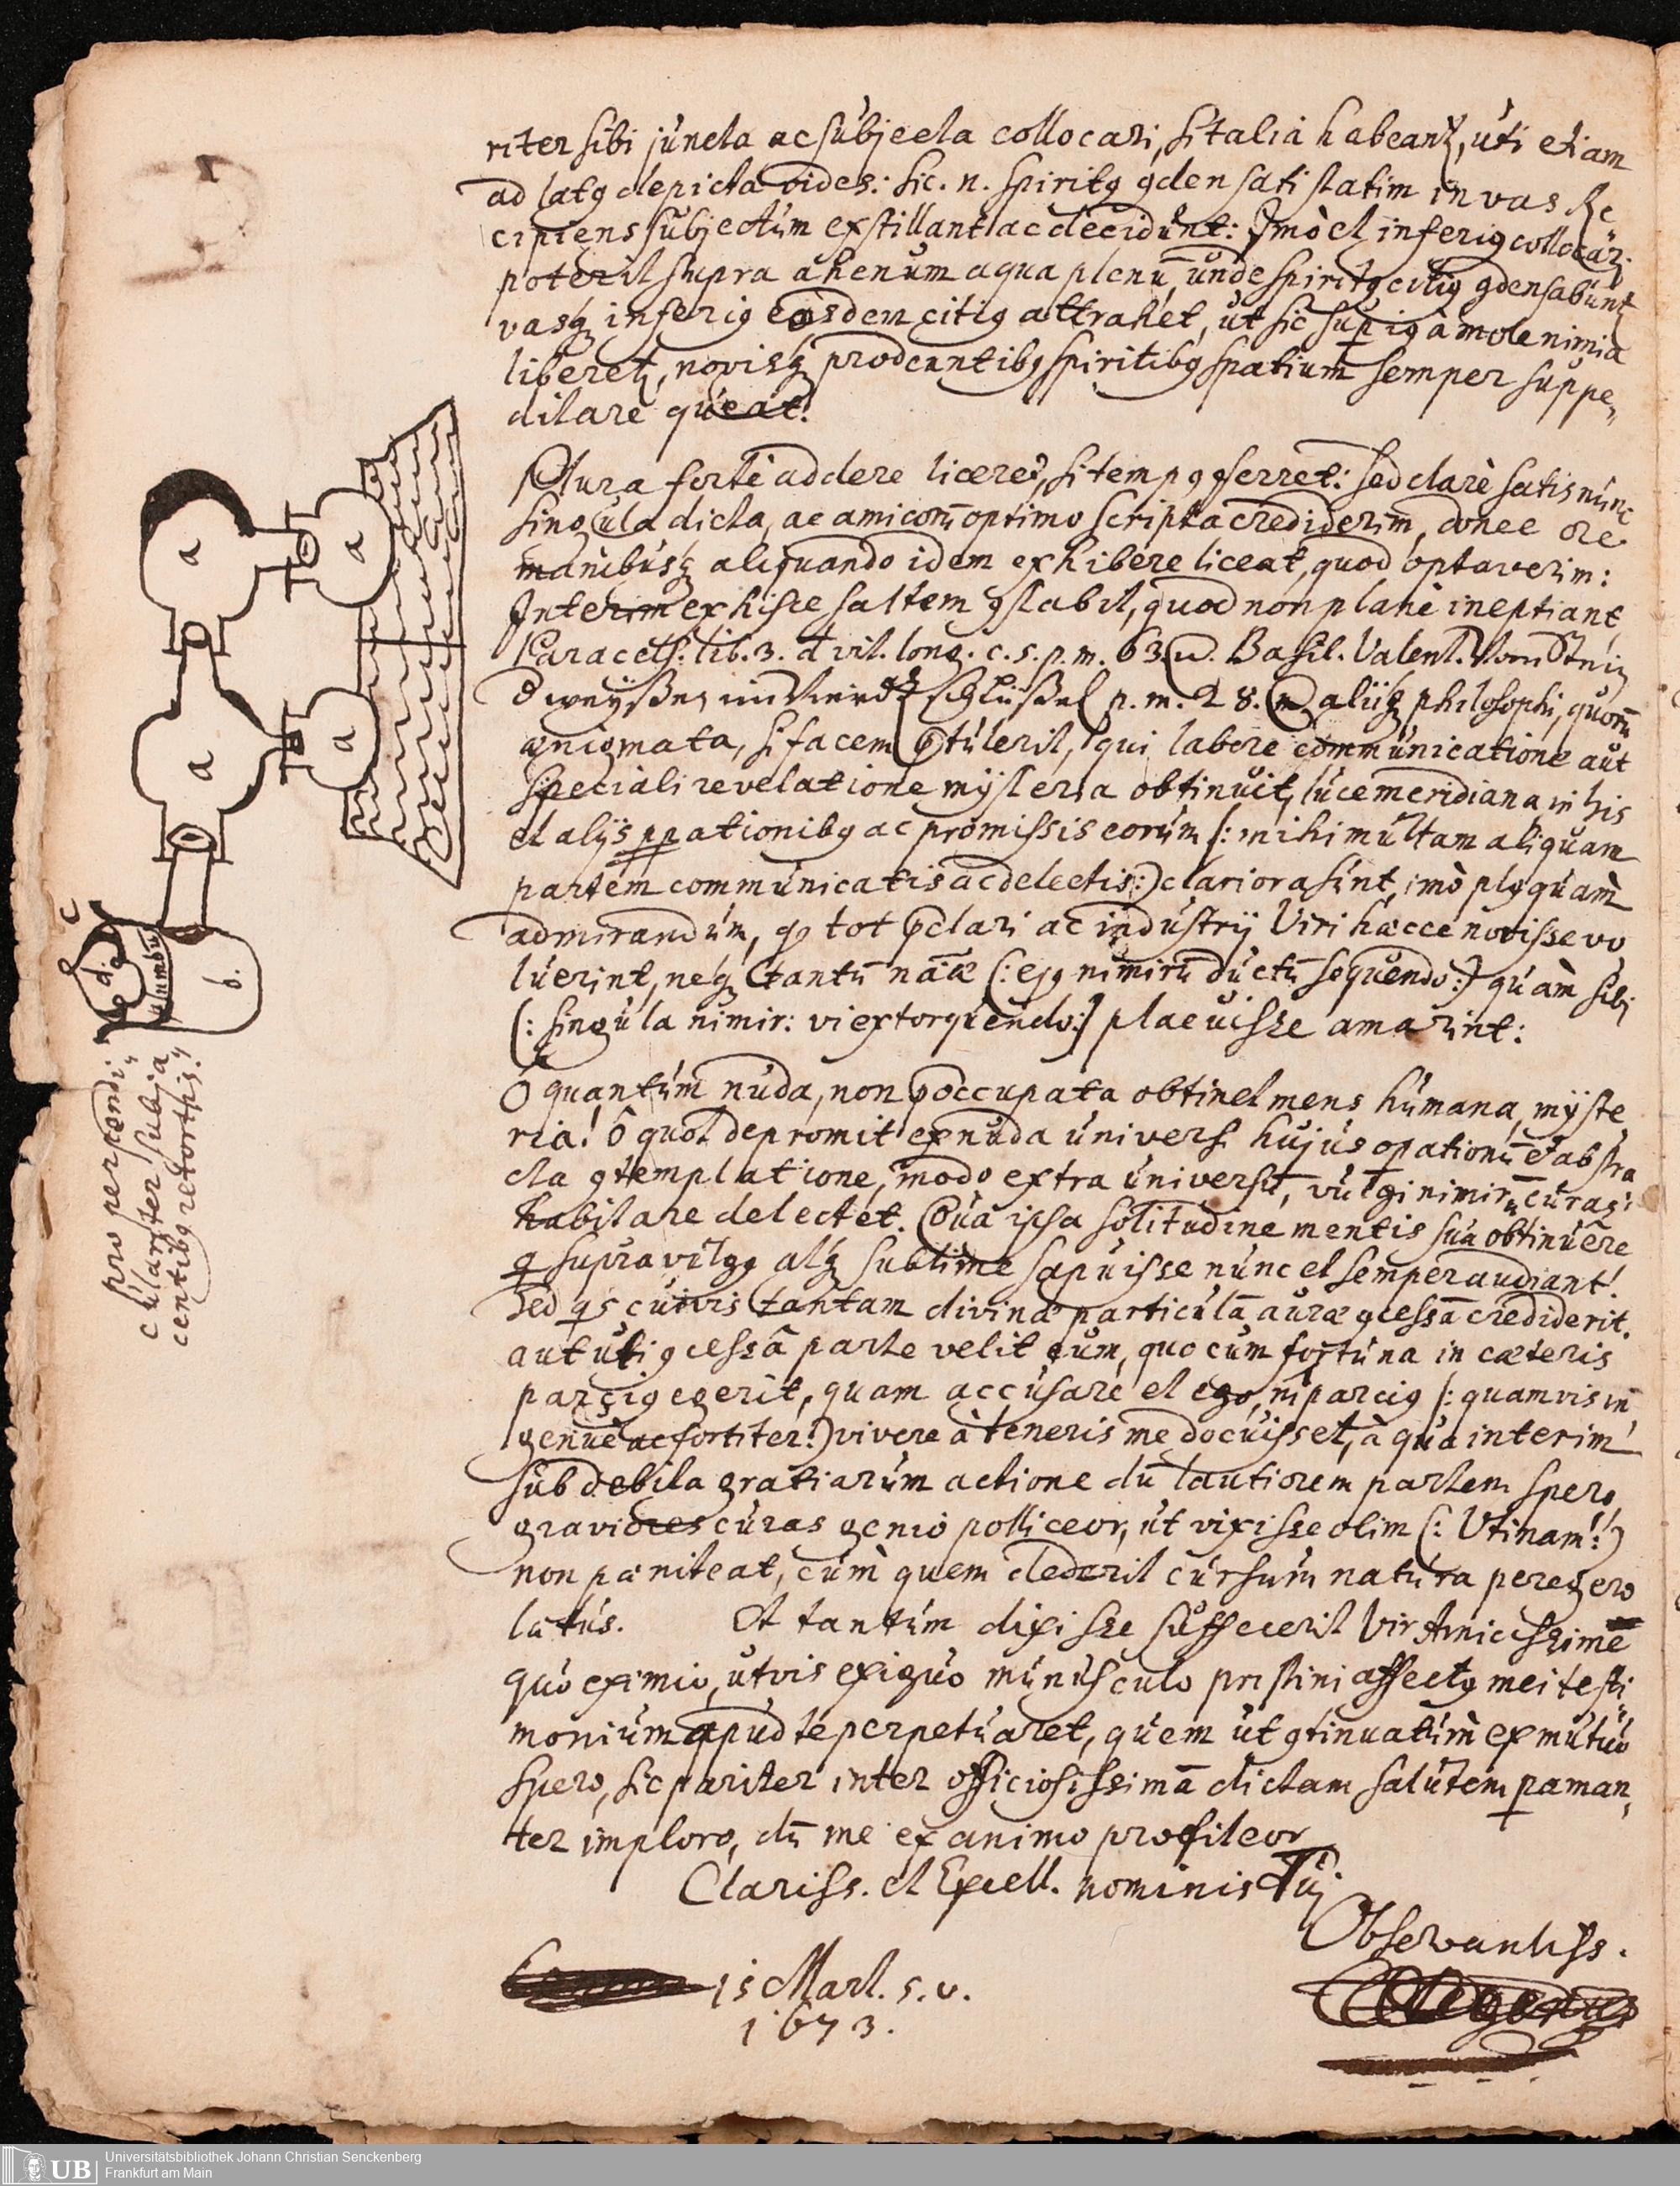 riter sibi juncta ac subjecta collocari, si talia habeantꝫ, uti etiam
ad latꝯ depicta vides: sic. n. spiritꝯ ꝯdensati statim in vas Re
cipiens subjectum exstillant ac decidunt: Imò et inferiꝯ collocari
poterit supra ahenum aqua plenū, unde spiritꝯ citiꝯ ꝯdensabuntꝫ
vasqꝫ inferiꝯ eosdem citiꝯ attrahet, ut sic supiꝯ à mole nimia
liberetꝫ, novisqꝫ prodeuntibꝯ spiritibꝯ spatium semper suppe„
ditare queat!
Plura fortè addere liceret, si tempꝯ ferret: sed clarè satis nunc
singula dicta, ac amicorū optimo scripta crediderim, donec ore
manibusqꝫ aliquando idem exhibere liceat, quod optaverim:
Interim ex hisce saltem ꝯstabit, quod non planè ineptiant
Paracels: lib. 3. d vit. long. c. 5. p. m. 63. Basil. Valent. Vom Stein
schlüßel p. m. 28. aliiqꝫ philosophi, quorū
ænigmata, si facem ꝓtulerit, qui labore communicatione aut
speciali revelatione mÿsteria obtinuit, luce meridiana in his
et alÿs ppationibꝯ ac promissis eorum (: mihi multam aliquam
partem communicatis ac delectis:) clariora sint, imò plꝯ quàm
admirandum, qꝯ tot pclari ac industrÿ Viri hæcce novisse vo
luerint, neqꝫ tantū nāæ (: ejꝯ nimirū ductū sequendo:) quàm sibi
(: singula nimir: vi extorquendo:) placuisse amarint:
O quantum nuda, non poccupata obtinet mens humana, mÿste
ria! ô quot depromit ex nuda univers. hujus opationū et abstra
cta ꝯtemplatione, modo extra universū, vulgi nimirū curas,
habitare delectet. Quâ ipsa solitudine mentis sua obtinuêre
q supra vulgꝯ atqꝫ sublime sapuisse nunc et semper audiant!
Sed qs cuivis tantam divinæ particulā auræ ꝯcessā crediderit.
aut uti ꝯcessâ parte velit cum, quocum fortuna in cæteris
parciꝯ egerit, quam accusare et ego, ni parciꝯ (: quamvis in
genuè ac fortiter:) vivere à teneris me docuisset, à qua interim
sub debita gratiarum actione dū lautiorem partem spero,
graviores curas genio polliceor, ut vixisse olim (: Utinam!:)
non pæniteat, cùm quem dederit cursum natura peregero
latus. Et tantum dixisse suffecerit Vir Amicissime
quo eximio, utvis exiguo munusculo pristini affectꝯ mei testi
monium apud te perpetuaret, quem ut ꝯtinuatum ex mutuo
spero, sic pariter inter officiosissimā dictam salutem paman„
ter imploro, dū me ex animo profiteor
Clariss. et Excell. nominis Tuj
Observantiss.
15 Mart. s. v.
1673.
a
a
a
a
b.
c
d.
plumbū
pro perpendi„
culariter subja„
centibꝯ retortis.
UB
Universitätsbibliothek Johann Christian Senckenberg
Frankfurt am Main